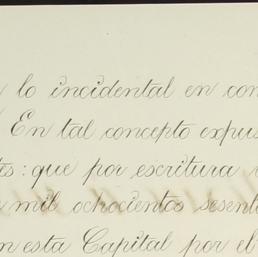 lo incidental en con
En tal concepto expus
tes: que por escritura
mil ochocientos sesent
en esta Capital por el